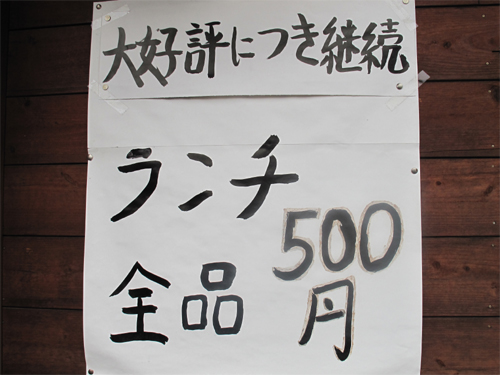 大好評につき継続
ランチ
全品
500
円